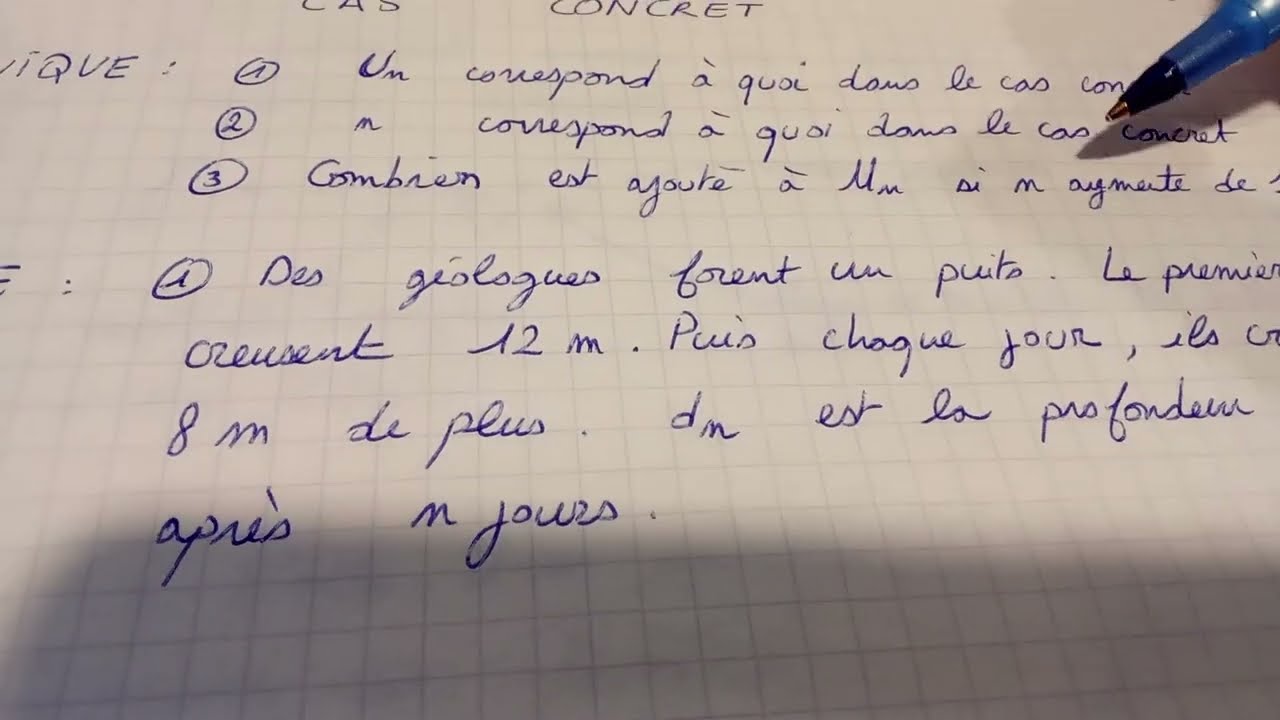 CAS CONCRET
NIQUE : ① Un correspond à quoi dans le cas
② n correspond à quoi dans le cas concret
③ Combien est ajouté à Un si n augmente de 1
: ① Des géologues forent un puits. Le premier
creusent 12 m. Puis chaque jour, ils
8 m de plus. dn est la profondeur
après n jours.